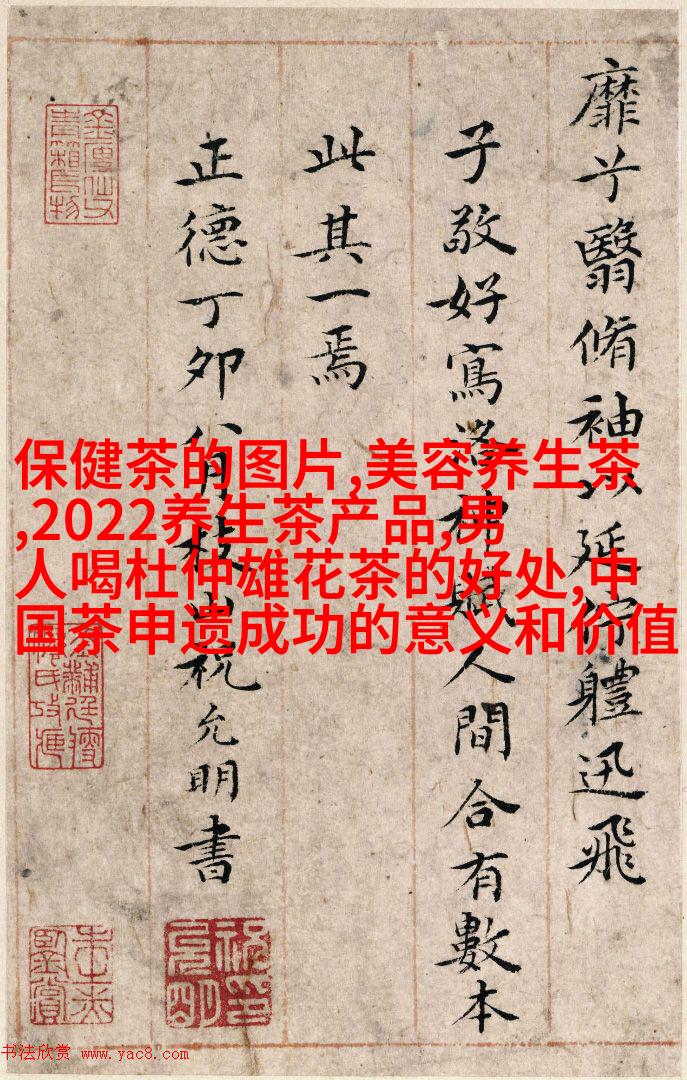 靡兮翳脩袖以延佇體迅飛
子敬好寫洛神賦人間合有數本
此其一焉
正德丁卯八月枝山祝允明書
保健茶的图片,美容养生茶
,2022养生茶产品,男
人喝杜仲雄花茶的好处,中
国茶申遗成功的意义和价值
书法欣赏 www.yac8.com